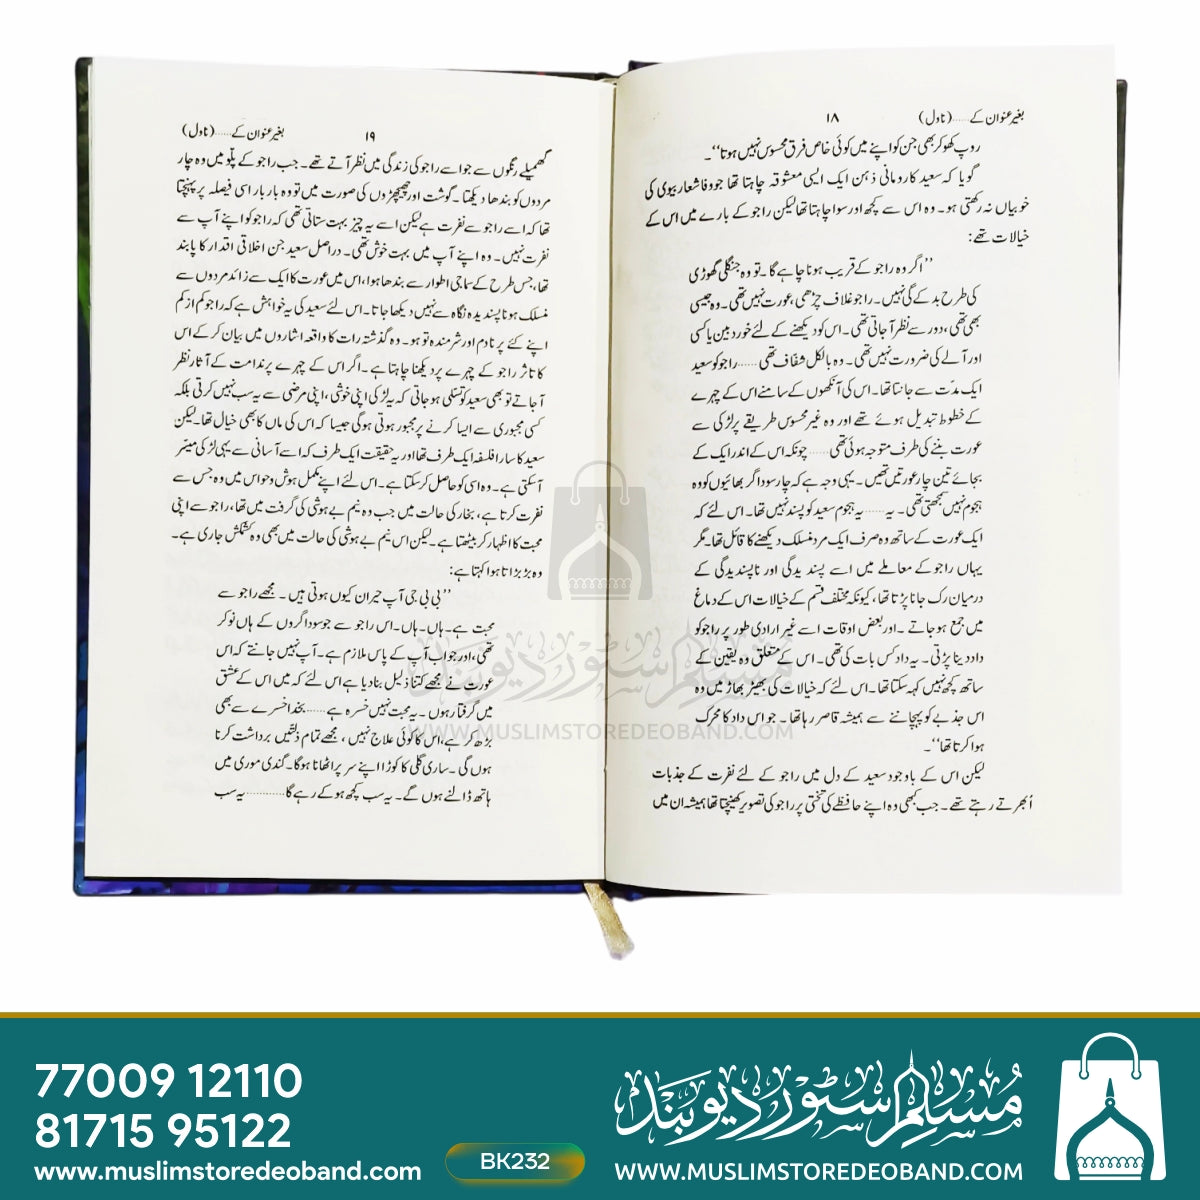 بغیر عنوان کے......(ناول) ۱۸
روپ کھو کر بھی جن کو اپنے میں کوئی خاص فرق محسوس نہیں ہوتا‘‘۔
گویا کہ سعید کا رومانی ذہن ایک ایسی معشوقہ چاہتا تھا جو وفا شعار بیوی کی
خوبیاں نہ رکھتی ہو۔ وہ اس سے کچھ اور سوا چاہتا تھا لیکن راجو کے بارے میں اس کے
خیالات تھے:
’’اگر وہ راجو کے قریب ہونا چاہے گا۔ تو وہ جنگلی گھوڑی
کی طرح بدکے گی نہیں۔ راجو غلاف چڑھی، عورت نہیں تھی۔ وہ جیسی
بھی تھی، دور سے نظر آجاتی تھی۔ اس کو دیکھنے کے لئے خوردبین یا کسی
اور آلے کی ضرورت نہیں تھی۔ وہ بالکل شفاف تھی ...... راجو کو سعید
ایک مدّت سے جانتا تھا۔ اس کی آنکھوں کے سامنے اس کے چہرے
کے خطوط تبدیل ہوئے تھے اور وہ غیر محسوس طریقے پر لڑکی سے
عورت بننے کی طرف متوجہ ہوئی تھی ...... چونکہ اس کے اندر ایک کے
بجائے تین چار عورتیں تھیں۔ یہی وجہ ہے کہ چار سوداگر بھائیوں کو وہ
ہجوم نہیں سمجھتی تھی۔ یہ ...... یہ ہجوم سعید کو پسند نہیں تھا۔ اس لئے کہ
ایک عورت کے ساتھ وہ صرف ایک مرد منسلک دیکھنے کا قائل تھا۔ مگر
یہاں راجو کے معاملے میں اسے پسندیدگی اور ناپسندیدگی کے
درمیان رک جانا پڑتا تھا، کیونکہ مختلف قسم کے خیالات اس کے دماغ
میں جمع ہو جاتے۔ اور بعض اوقات اسے غیر ارادی طور پر راجو کو
داد دینا پڑتی۔ یہ داد کس بات کی تھی۔ اس کے متعلق وہ یقین کے
ساتھ کچھ نہیں کہہ سکتا تھا۔ اس لئے کہ خیالات کی بھیڑ بھاڑ میں وہ
اس جذبے کو پہچاننے سے ہمیشہ قاصر رہا تھا۔ جو اس داد کا محرک
ہوا کرتا تھا‘‘۔
لیکن اس کے باوجود سعید کے دل میں راجو کے لئے نفرت کے جذبات
اُبھرتے رہتے تھے۔ جب کبھی وہ اپنے حافظے کی تختی پر راجو کی تصویر کھینچتا تھا ہمیشہ ان میں
بغیر عنوان کے......(ناول) ۱۹
گھمیلے رنگوں سے جو اسے راجو کی زندگی میں نظر آتے تھے۔ جب راجو کے پلّو میں وہ چار
مردوں کو بندھا دیکھتا۔ گوشت اور چھیچھڑوں کی صورت میں تو وہ بار بار اسی فیصلہ پر پہنچتا
تھا کہ اسے راجو سے نفرت ہے لیکن اسے یہ چیز بہت ستاتی تھی کہ راجو کو اپنے آپ سے
نفرت نہیں۔ وہ اپنے آپ میں بہت خوش تھی۔ دراصل سعید جن اخلاقی اقدار کا پابند
تھا، جس طرح کے سماجی اطوار سے بندھا ہوا، اس میں عورت کا ایک سے زائد مردوں سے
منسلک ہونا پسندیدہ نگاہ سے نہیں دیکھا جاتا۔ اس لئے سعید کی یہ خواہش ہے کہ راجو کم از کم
اپنے کئے پر نادم اور شرمندہ تو ہو۔ وہ گذشتہ رات کا واقعہ اشاروں میں بیان کر کے اس
کا تاثر راجو کے چہرے پر دیکھنا چاہتا ہے۔ اگر اس کے چہرے پر ندامت کے آثار نظر
آجاتے تو بھی سعید کو تسلی ہو جاتی کہ یہ لڑکی اپنی خوشی، اپنی مرضی سے یہ سب نہیں کرتی بلکہ
کسی مجبوری سے ایسا کرنے پر مجبور ہوتی ہوگی جیسا کہ اس کی ماں کا بھی خیال تھا۔ لیکن
سعید کا سارا فلسفہ ایک طرف تھا اور یہ حقیقت ایک طرف کہ اسے آسانی سے یہی لڑکی میسر
آسکتی ہے۔ وہ اسی کو حاصل کرسکتا ہے۔ اس لئے اپنے مکمل ہوش وحواس میں وہ جس سے
نفرت کرتا ہے، بخار کی حالت میں جب وہ نیم بے ہوشی کی گرفت میں تھا، راجو سے اپنی
محبت کا اظہار کر بیٹھتا ہے۔ لیکن اس نیم بے ہوشی کی حالت میں بھی وہ کشمکش جاری ہے۔
وہ بڑبڑاتا ہوا کہتا ہے:
’’بی بی جی آپ حیران کیوں ہوتی ہیں۔ مجھے راجو سے
محبت ہے۔ ہاں۔ ہاں۔ اس راجو سے جو سوداگروں کے ہاں نوکر
تھی، اور جو اب آپ کے پاس ملازم ہے۔ آپ نہیں جانتے کہ اس
عورت نے مجھے کتنا ذلیل بنا دیا ہے اس لئے کہ میں اس کے عشق
میں گرفتار ہوں۔ یہ محبت نہیں خسرہ ہے ...... بخدا خسرے سے بھی
بڑھ کر ہے، اس کا کوئی علاج نہیں، مجھے تمام ذلتیں برداشت کرنا
ہوں گی۔ ساری گلی کا کوڑا اپنے سر پر اٹھانا ہوگا۔ گندی موری میں
ہاتھ ڈالنے ہوں گے۔ یہ سب کچھ ہو کے رہے گا ......... یہ سب
مسلم سٹور دیوبند
WWW.MUSLIMSTOREDEOBAND.COM
77009 12110
81715 95122
www.muslimstoredeoband.com
BK232
مسلم سٹور دیوبند
WWW.MUSLIMSTOREDEOBAND.COM